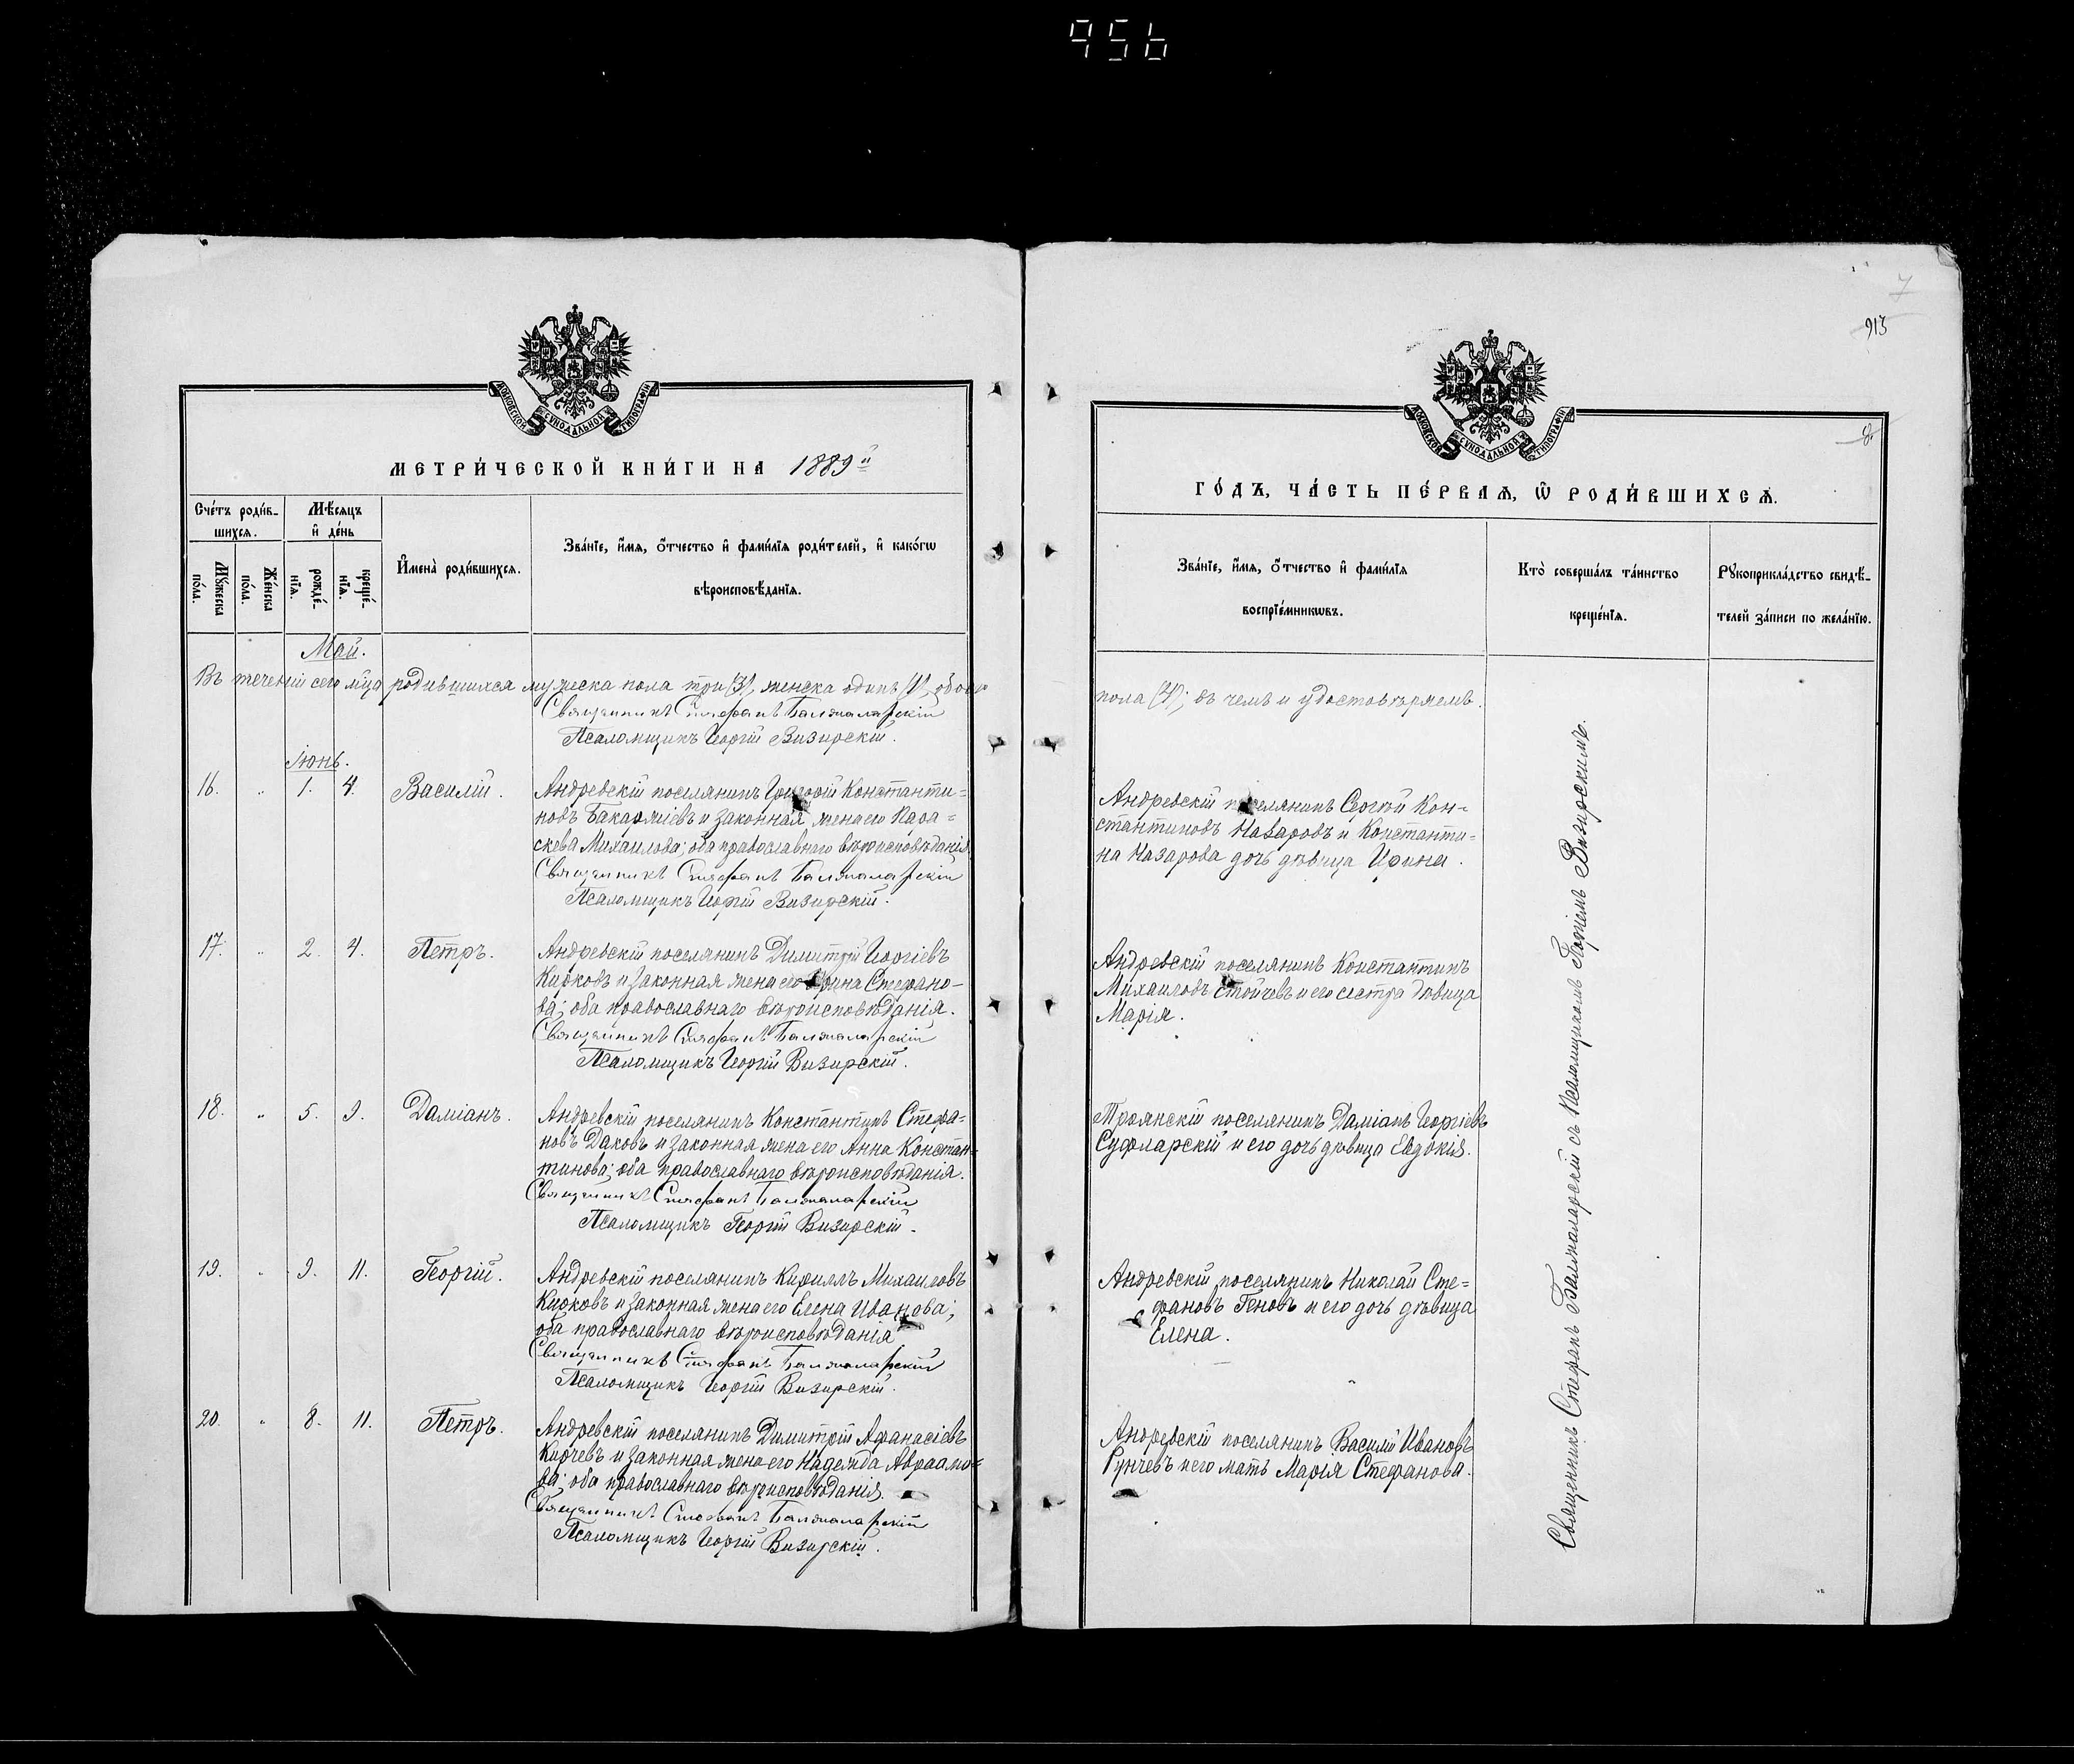 956
7
913
8.
МОСКОВСКОЙ СѴНОДАЛЬНОЙ ТИПОГРАФІИ
МЕТРИ́ЧЕСКОЙ КНИ́ГИ НА 1889й
Сче́тъ роди́в-
шихся.
Мѣ́сяцъ
и҆ де́нь
Мꙋ́жеска
по́ла.
Же́нска
по́ла.
рожде́-
нїѧ.
креще́-
нїѧ.
И҆мена̀ роди́вшихся.
Зва́нїе, и҆́мѧ, ѻ҆́тчество и҆ фами́лїѧ роди́телей, и҆ како́гѡ
вѣроисповѣ́данїѧ.
Май.
Въ теченіи сего мѣца родившихся мужеска пола три (3), женска одинъ (1), обоего
Священникъ Стефанъ Балжаларскій
Псаломщикъ Георгій Визирскій.
Іюнь.
16. „ 1. 4. Василій.
Андревскій поселянинъ Григорій Константи=
новъ Бакаржіевъ и законная жена его Пара=
скева Михаилова; оба православнаго вѣроисповѣданія.
Священникъ Стефанъ Балжаларскій
Псаломщикъ Георгій Визирскій.
17. „ 2. 4. Петръ.
Андревскій поселянинъ Димитрій Георгіевъ
Кирковъ и законная жена его Ирина Стефано-
ва; оба православнаго вѣроисповѣданія.
Священникъ Стефанъ Балжаларскій
Псаломщикъ Георгій Визирскій.
18. „ 5. 9. Даміанъ.
Андревскій поселянинъ Константинъ Стефа=
новъ Даковъ и законная жена его Анна Констан=
тинова; оба православнаго вѣроисповѣданія.
Священникъ Стефанъ Балжаларскій
Псаломщикъ Георгій Визирскій.
19. „ 9. 11. Георгій.
Андревскій поселянинъ Кириллъ Михаиловъ
Кирковъ и законная жена его Елена Иванова;
оба православнаго вѣроисповѣданія
Священникъ Стефанъ Балжаларскій
Псаломщикъ Георгій Визирскій.
20. „ 8. 11. Петръ.
Андревскій поселянинъ Димитрій Афанасіевъ
Кирчевъ и законная жена его Надежда Авраамо=
ва; оба православнаго вѣроисповѣданія.
Священникъ Стефанъ Балжаларскій
Псаломщикъ Георгій Визирскій.
МОСКОВСКОЙ СѴНОДАЛЬНОЙ ТИПОГРАФІИ
ГО́ДЪ, ЧА́СТЬ ПЕ́РВАѦ, Ѡ҆ РОДИ́ВШИХСѦ.
Зва́нїе, и҆́мѧ, ѻ҆́тчество и҆ фами́лїѧ
воспрїе́мникѡвъ.
Кто̀ соверша́лъ та́инство
креще́нїѧ.
Рꙋкоприкла́дство свидѣ́-
телей за́писи по жела́нїю.
пола (4); въ чемъ и удостовѣряемъ.
Андревскій поселянинъ Сергѣй Кон=
стантиновъ Назаровъ и Константи=
на Назарова дочь дѣвица Ирина.
Андревскій поселянинъ Константинъ
Михаиловъ Стойчевъ и его сестра дѣвица
Марія.
Троянскій поселянинъ Даміанъ Георгіевъ
Суфларскій и его дочь дѣвица Евдокія.
Андревскій поселянинъ Николай Сте=
фановъ Геновъ и его дочь дѣвица
Елена.
Андревскій поселянинъ Василій Ивановъ
Рунчевъ и его мать Марія Стефанова.
Священникъ Стефанъ Балжаларскій съ Псаломщикомъ Георгіемъ Визирскимъ.